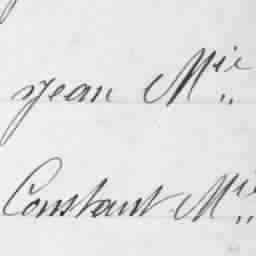 Jean Mie
Constant Mie